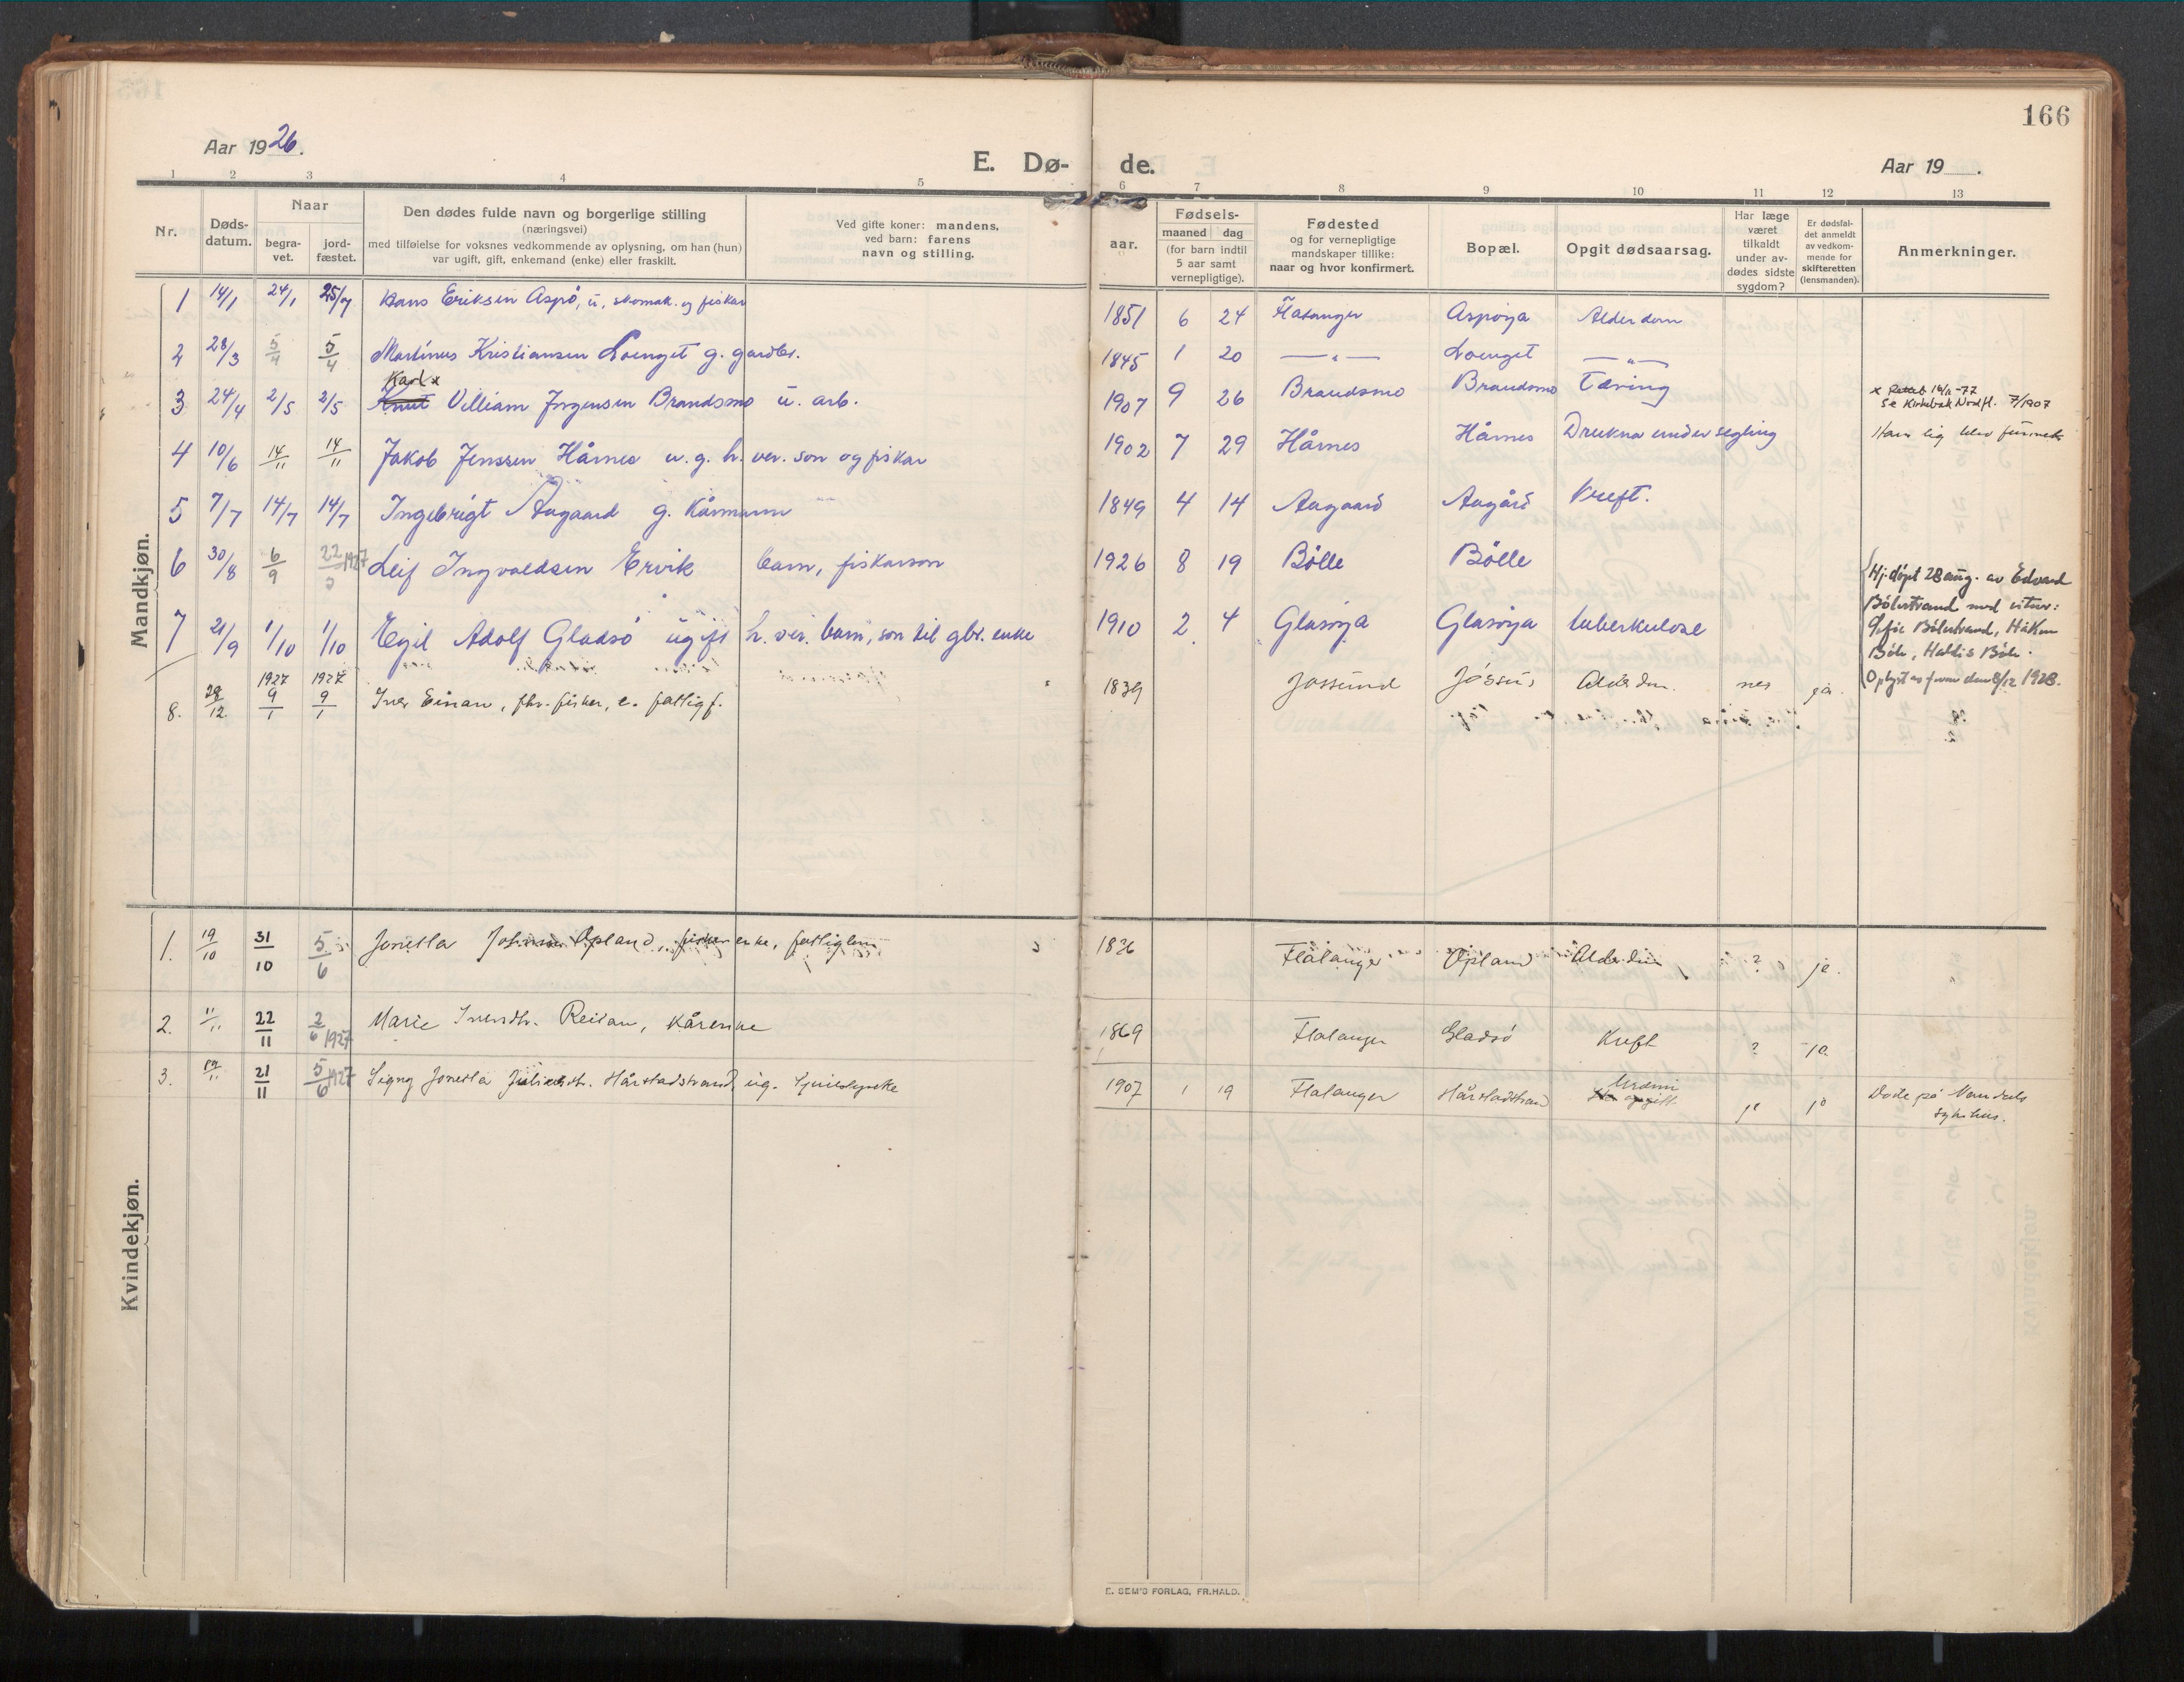 166
Aar 1926.
E. Dø-
de.
Aar 19
1 2 3 4 5 6 7 8 9 10 11 12 13
Nr.
Døds-
datum.
Naar
begra-
vet.
jord-
fæstet.
Den dødes fulde navn og borgerlige stilling
(næringsvei)
med tilføielse for voksnes vedkommende av oplysning, om han (hun)
var ugift, gift, enkemand (enke) eller fraskilt.
Ved gifte koner: mandens,
ved barn: farens
navn og stilling.
aar.
Fødsels-
maaned dag
(for barn indtil
5 aar samt
vernepligtige).
Fødested
og for vernepligtige
mandskaper tillike:
naar og hvor konfirmert.
Bopæl.
Opgit dødsaarsag.
Har læge
været
tilkaldt
under av-
dødes sidste
sygdom?
Er dødsfal-
det anmeldt
av vedkom-
mende for
skifteretten
(lensmanden).
Anmerkninger.
Mandkjøn.
1 14/1 24/1 25/7 Hans Eriksen Aspö, u, skomak. og fiskar 1851 6 24 Flatanger Aspøya Alderdom
2 28/3 5/4 5/4 Martinus Kristiansen Loenget g. gardbr. 1845 1 20 — " — Loenget — " —
Karl x
3 24/4 2/5 2/5 Knut Villiam Jørgensen Brandsmo u. arb. 1907 9 26 Brandsmo Brandsmo Tæring
x Rettet 16/11-77
Se Kirkebok Nordfl. 7/1907
4 10/6 14/11 14/11 Jakob Jenssen Hårnes u. g. h. ver. son og fiskar 1902 7 29 Hårnes Hårnes Drukna under segling Hans lig blev funnet
5 7/7 14/7 14/7 Ingebrigt Aagaard g. Kårmann 1849 4 14 Aagaard Aagård Kreft.
6 30/8 6/9 22/3 1927 Leif Ingvaldsen Ervik barn, fiskarson 1926 8 19 Bölle Bölle
Hj. döpt 28 aug. av Edvard
Bölestrand med vitner:
Bölestrand, Håkon
Böle, Haldis Böle.
Oplyst av den 8/12 1928.
7 21/9 1/10 1/10 Egil Adolf Gladsö ugift h. ver. barn, son til gbr. enke 1910 2 4 Glasøya Glasøya tuberkulose
8. 29/12 1927 9/1 1927 9/1 Iver Einan, fhv. fisker, e. fattigf. 1839 Jøssund Jøssund Alderdom nei ja.
Kvindekjøn.
1. 19/10 31/10 5/6 Jonetta Opland, fisker enke, fattiglem 1836 Flatanger Opland Alderdom ? ja.
2. 11/11 22/11 2/6 1927 Marie Iversdtr. Reitan, Kårenke 1869 Flatanger Gladsö Kreft ? ja.
3. 21/11 5/6 1927 Signy Jonetta Julieusdt. Hårstadstrand, ug. 1907 1 19 Flatanger Hårstadstrand Uræmi ja ja
Døde på Namdals
sykehus.
E. SEM'S FORLAG, FR.HALD.